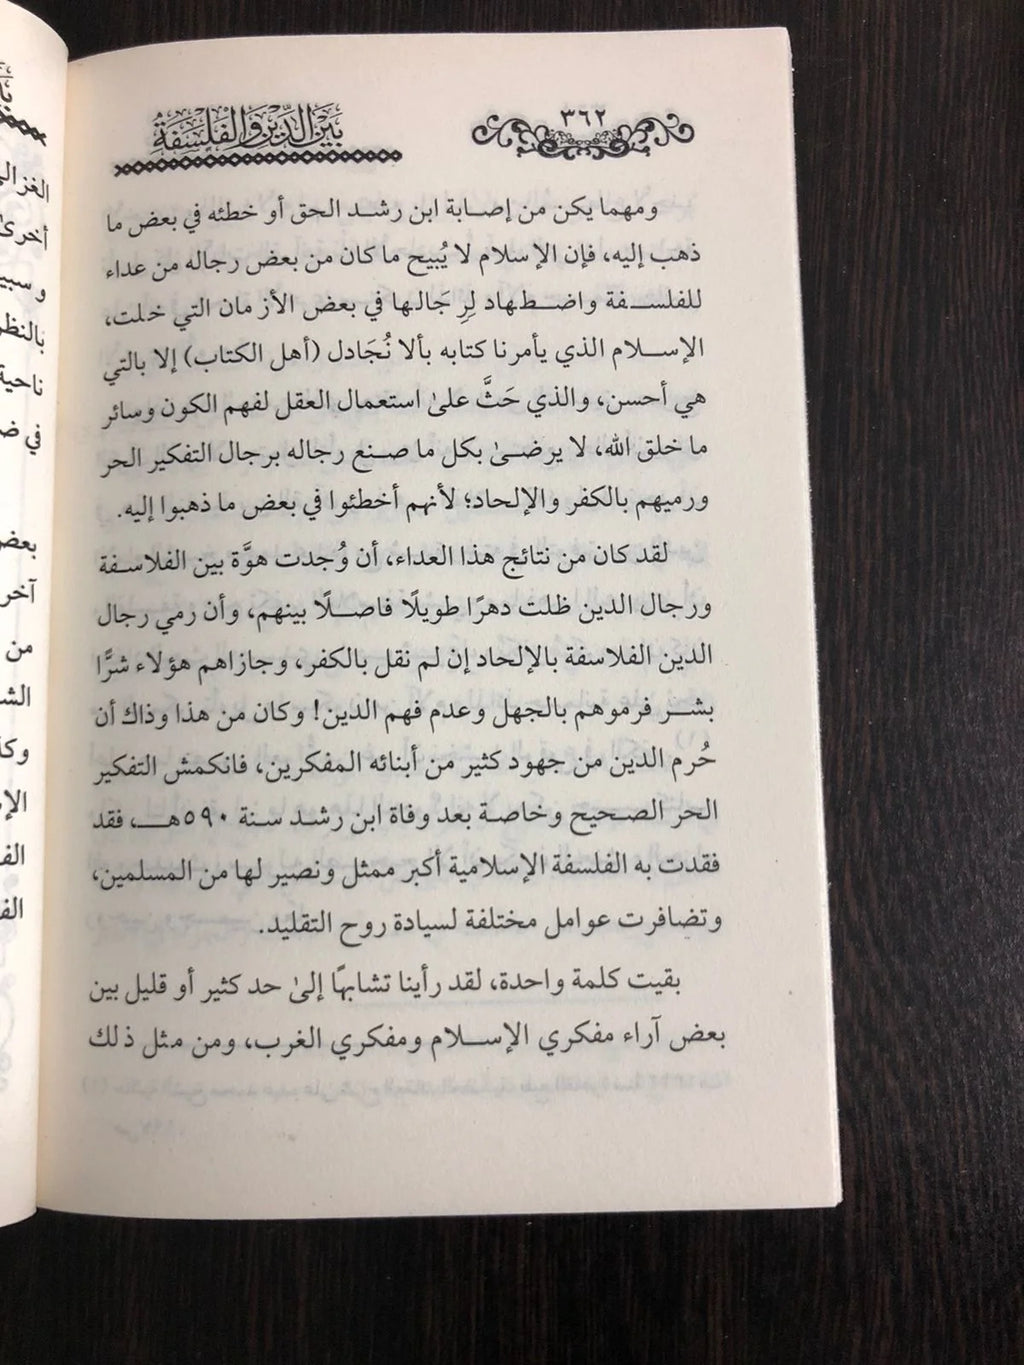 ٣٦٢
بَيْنَ الدِّيْنِ وَالْفَلْسَفَةِ
ومهما يكن من إصابة ابن رشد الحق أو خطئه في بعض ما
ذهب إليه، فإن الإسلام لا يُبيح ما كان من بعض رجاله من عداء
للفلسفة واضطهاد لِرِجَالها في بعض الأزمان التي خلت،
الإسلام الذي يأمرنا كتابه بألا نُجَادل (أهل الكتاب) إلا بالتي
هي أحسن، والذي حَثَّ علىٰ استعمال العقل لفهم الكون وسائر
ما خلق الله، لا يرضىٰ بكل ما صنع رجاله برجال التفكير الحر
ورميهم بالكفر والإلحاد؛ لأنهم أخطئوا في بعض ما ذهبوا إليه.
لقد كان من نتائج هذا العداء، أن وُجدت هوَّة بين الفلاسفة
ورجال الدين ظلت دهرًا طويلًا فاصلًا بينهم، وأن رمي رجال
الدين الفلاسفة بالإلحاد إن لم نقل بالكفر، وجازاهم هؤلاء شرًّا
بشر فرموهم بالجهل وعدم فهم الدين! وكان من هذا وذاك أن
حُرم الدين من جهود كثير من أبنائه المفكرين، فانكمش التفكير
الحر الصحيح وخاصة بعد وفاة ابن رشد سنة ٥٩٠هـ، فقد
فقدت به الفلسفة الإسلامية أكبر ممثل ونصير لها من المسلمين،
وتضافرت عوامل مختلفة لسيادة روح التقليد.
بقيت كلمة واحدة، لقد رأينا تشابهًا إلىٰ حد كثير أو قليل بين
بعض آراء مفكري الإسلام ومفكري الغرب، ومن مثل ذلك